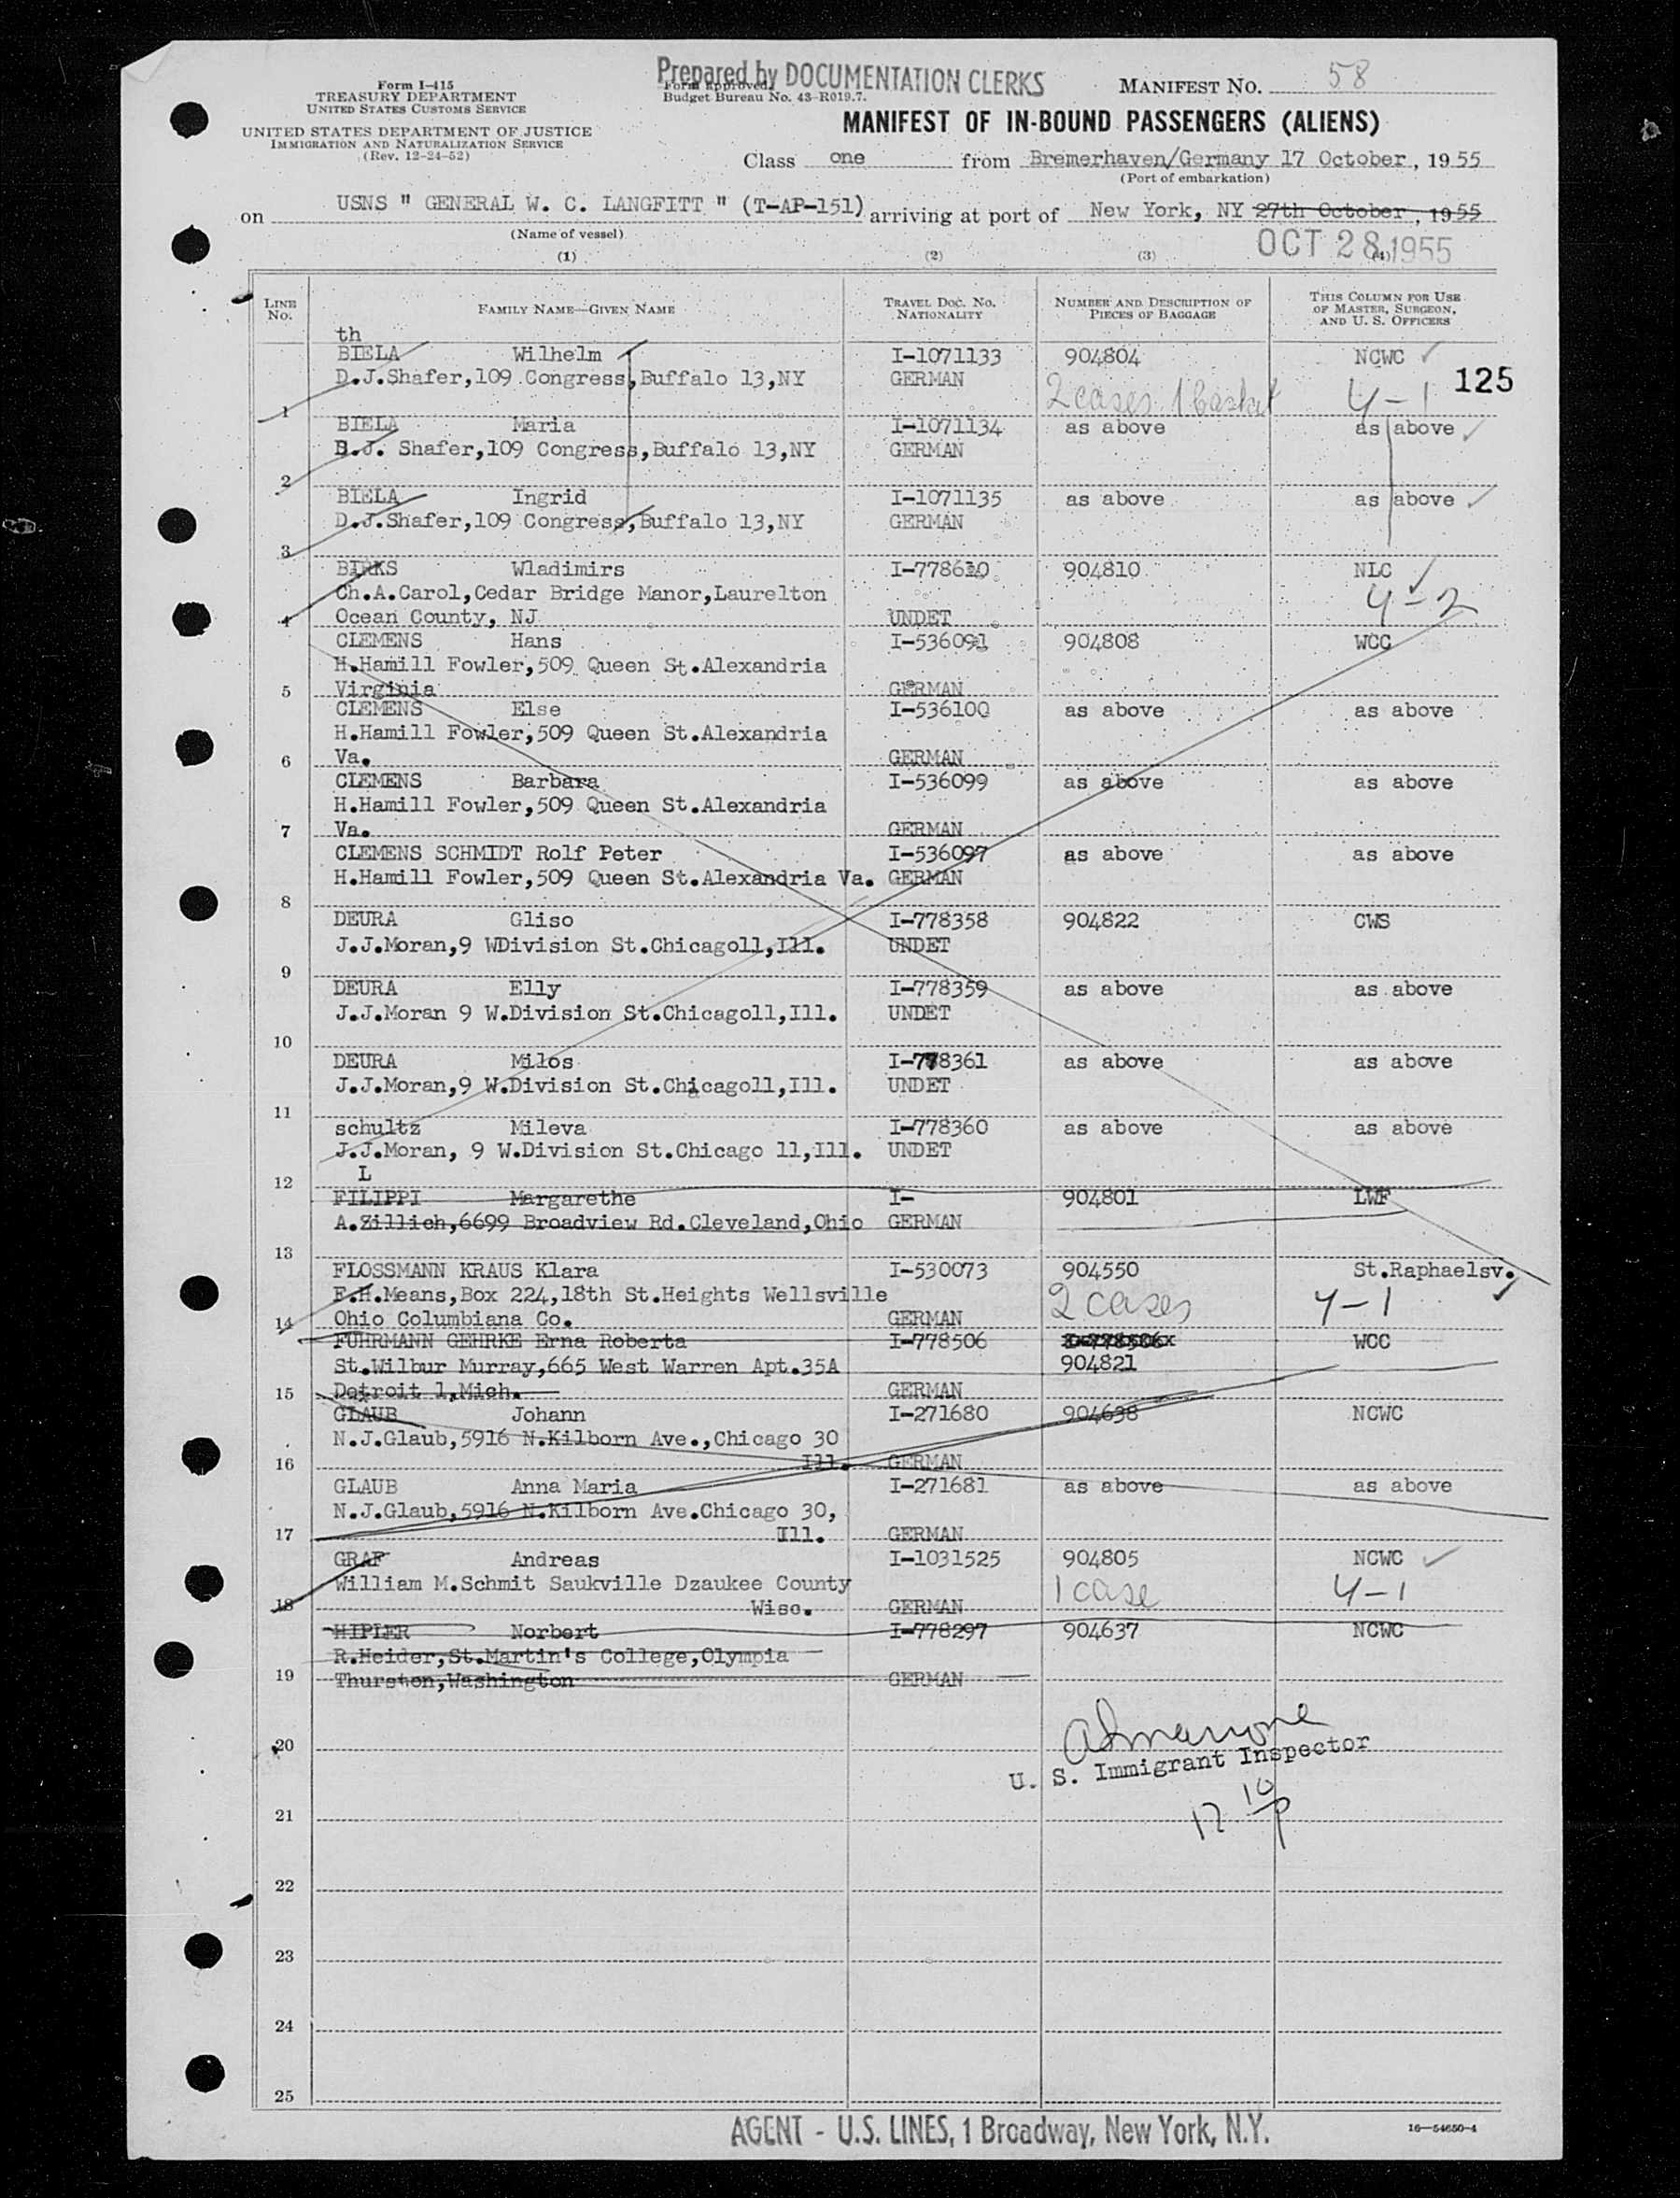 Form I-415
TREASURY DEPARTMENT
UNITED STATES CUSTOMS SERVICE
UNITED STATES DEPARTMENT OF JUSTICE
IMMIGRATION AND NATURALIZATION SERVICE
(Rev. 12-24-52)
Prepared by DOCUMENTATION CLERKS
Form approved.
Budget Bureau No. 43-R019.7.
MANIFEST NO. 58
MANIFEST OF IN-BOUND PASSENGERS (ALIENS)
Class one from Bremerhaven/Germany 17 October, 1955
(Port of embarkation)
on USNS " GENERAL W. C. LANGFITT " (T-AP-151) arriving at port of New York, NY 27th October, 1955
(Name of vessel)
OCT 28 1955
(1) (2) (3) (4)
LINE No. FAMILY NAME—GIVEN NAME TRAVEL DOC. NO. NATIONALITY NUMBER AND DESCRIPTION OF PIECES OF BAGGAGE THIS COLUMN FOR USE OF MASTER, SURGEON, AND U. S. OFFICERS
th
BIELA Wilhelm I-1071133 904804 NCWC
D.J.Shafer,109 Congress,Buffalo 13,NY GERMAN 2 cases 1 basket 4-1 125
1
BIELA Maria I-1071134 as above as above
B.J. Shafer,109 Congress,Buffalo 13,NY GERMAN
2
BIELA Ingrid I-1071135 as above as above
D.J.Shafer,109 Congress,Buffalo 13,NY GERMAN
3
BIRKS Wladimirs I-778610 904810 NLC
Ch.A.Carol,Cedar Bridge Manor,Laurelton 4-2
4 Ocean County, NJ UNDET
CLEMENS Hans I-536091 904808 WCC
H.Hamill Fowler,509 Queen St.Alexandria
5 Virginia GERMAN
CLEMENS Else I-536100 as above as above
H.Hamill Fowler,509 Queen St.Alexandria
6 Va. GERMAN
CLEMENS Barbara I-536099 as above as above
H.Hamill Fowler,509 Queen St.Alexandria
7 Va. GERMAN
CLEMENS SCHMIDT Rolf Peter I-536097 as above as above
H.Hamill Fowler,509 Queen St.Alexandria Va. GERMAN
8
DEURA Gliso I-778358 904822 CWS
J.J.Moran,9 WDivision St.Chicago11,Ill. UNDET
9
DEURA Elly I-778359 as above as above
J.J.Moran 9 W.Division St.Chicago11,Ill. UNDET
10
DEURA Milos I-778361 as above as above
J.J.Moran,9 W.Division St.Chicago11,Ill. UNDET
11
schultz Mileva I-778360 as above as above
J.J.Moran, 9 W.Division St.Chicago 11,Ill. UNDET
L
12
FILIPPI Margarethe I- 904801 LWF
A.Zillich,6699 Broadview Rd.Cleveland,Ohio GERMAN
13
FLOSSMANN KRAUS Klara I-530073 904550 St.Raphaelsv.
F.H.Means,Box 224,18th St.Heights Wellsville 2 cases 4-1
14 Ohio Columbiana Co. GERMAN
FUHRMANN GEHRKE Erna Roberta I-778506 I-778506x WCC
St.Wilbur Murray,665 West Warren Apt.35A 904821
15 Detroit 1,Mich. GERMAN
GLAUB Johann I-271680 904638 NCWC
N.J.Glaub,5916 N.Kilborn Ave.,Chicago 30
16 Ill. GERMAN
GLAUB Anna Maria I-271681 as above as above
N.J.Glaub,5916 N.Kilborn Ave.Chicago 30,
17 Ill. GERMAN
GRAF Andreas I-1031525 904805 NCWC
William M.Schmit Saukville Dzaukee County 1 case 4-1
18 Wisc. GERMAN
HIPLER Norbert I-778297 904637 NCWC
R.Heider,St.Martin's College,Olympia
19 Thurston,Washington GERMAN
20
U. S. Immigrant Inspector
12 10/p
21
22
23
24
25
AGENT - U.S. LINES, 1 Broadway, New York, N.Y.
16—54650-4